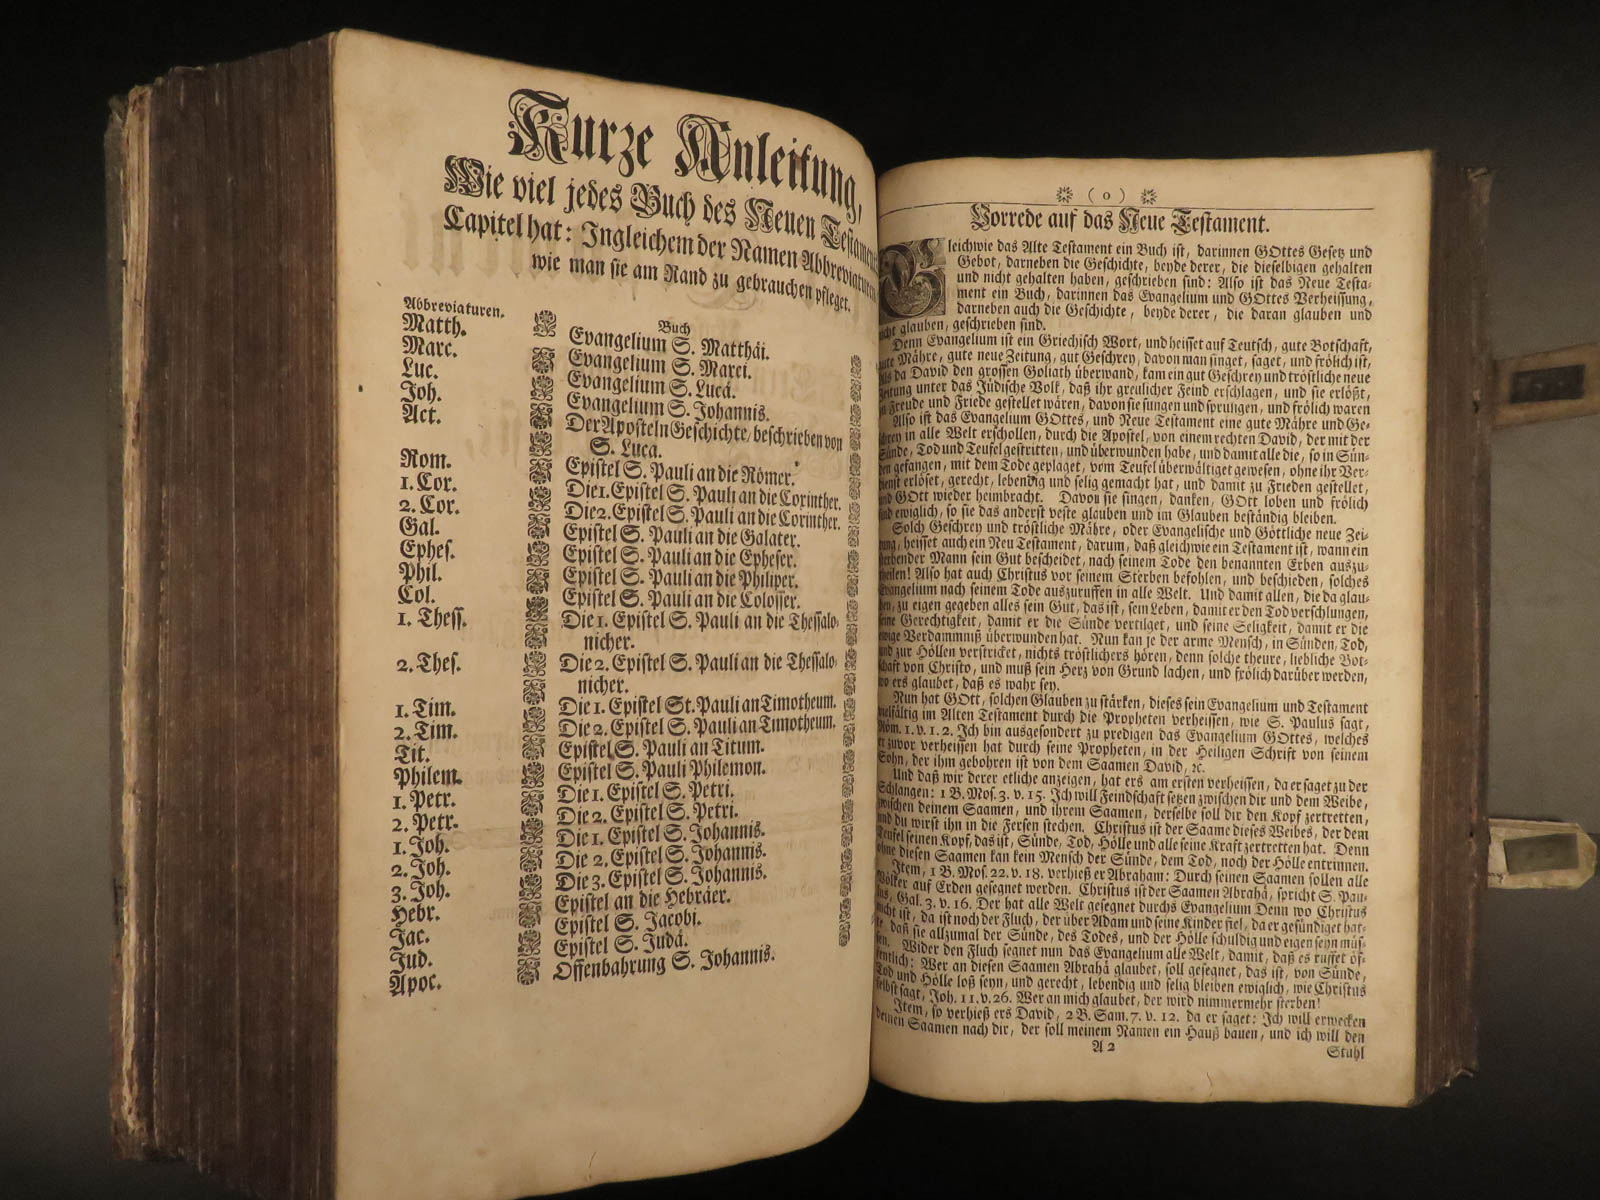 Kurze Anleitung,
Wie viel jedes Buch des Neuen Testament
Capitel hat: Ingleichem der Namen Abbreviaturen
wie man sie am Rand zu gebrauchen pfleget.
Abbreviaturen. Buch
Matth. Evangelium S. Matthäi.
Marc. Evangelium S. Marci.
Luc. Evangelium S. Lucä.
Joh. Evangelium S. Johannis.
Act. Der Aposteln Geschichte/ beschrieben von
S. Luca.
Rom. Epistel S. Pauli an die Römer.
1. Cor. Die 1. Epistel S. Pauli an die Corinther.
2. Cor. Die 2. Epistel S. Pauli an die Corinther.
Gal. Epistel S. Pauli an die Galater.
Ephes. Epistel S. Pauli an die Epheser.
Phil. Epistel S. Pauli an die Philiper.
Col. Epistel S. Pauli an die Colosser.
1. Thess. Die 1. Epistel S. Pauli an die Thessalo-
nicher.
2. Thes. Die 2. Epistel S. Pauli an die Thessalo-
nicher.
1. Tim. Die 1. Epistel St. Pauli an Timotheum.
2. Tim. Die 2. Epistel S. Pauli an Timotheum.
Tit. Epistel S. Pauli an Titum.
Philem. Epistel S. Pauli Philemon.
1. Petr. Die 1. Epistel S. Petri.
2. Petr. Die 2. Epistel S. Petri.
1. Joh. Die 1. Epistel S. Johannis.
2. Joh. Die 2. Epistel S. Johannis.
3. Joh. Die 3. Epistel S. Johannis.
Hebr. Epistel an die Hebräer.
Jac. Epistel S. Jacobi.
Jud. Epistel S. Judä.
Apoc. Offenbahrung S. Johannis.
( 0 )
Vorrede auf das Neue Testament.
Gleichwie das Alte Testament ein Buch ist, darinnen GOttes Gesetz und
Gebot, darneben die Geschichte, beyde derer, die dieselbigen gehalten
und nicht gehalten haben, geschrieben sind: Also ist das Neue Testa-
ment ein Buch, darinnen das Evangelium und GOttes Verheissung,
darneben auch die Geschichte, beyde derer, die daran glauben und
nicht glauben, geschrieben sind.
Denn Evangelium ist ein Griechisch Wort, und heisset auf Teutsch, gute Botschaft,
gute Mähre, gute neue Zeitung, gut Geschrey, davon man singet, saget, und frölich ist,
Als da David den grossen Goliath überwand, kam ein gut Geschrey und tröstliche neue
Zeitung unter das Jüdische Volk, daß ihr greulicher Feind erschlagen, und sie erlößt,
zu Freude und Friede gestellet wären, davon sie sungen und sprungen, und frölich waren
Also ist das Evangelium GOttes, und Neue Testament eine gute Mähre und Ge-
schrey in alle Welt erschollen, durch die Apostel, von einem rechten David, der mit der
Sünde, Tod und Teufel gestritten, und überwunden habe, und damit alle die, so in Sün-
den gefangen, mit dem Tode geplaget, vom Teufel überwältiget gewesen, ohne ihr Ver-
dienst erlöset, gerecht, lebendig und selig gemacht hat, und damit zu Frieden gestellet,
und GOtt wieder heimbracht. Davon sie singen, danken, GOtt loben und frölich
sind ewiglich, so sie das anderst veste glauben und im Glauben beständig bleiben.
Solch Geschrey und tröstliche Mähre, oder Evangelische und Göttliche neue Zei-
tung, heisset auch ein Neu Testament, darum, daß gleichwie ein Testament ist, wann ein
sterbender Mann sein Gut bescheidet, nach seinem Tode den benannten Erben auszu-
theilen! Also hat auch Christus vor seinem Sterben befohlen, und beschieden, solches
Evangelium nach seinem Tode auszuruffen in alle Welt. Und damit allen, die da glau-
ben, zu eigen gegeben alles sein Gut, das ist, sein Leben, damit er den Tod verschlungen,
seine Gerechtigkeit, damit er die Sünde vertilget, und seine Seligkeit, damit er die
ewige Verdammniß überwunden hat. Nun kan je der arme Mensch, in Sünden, Tod,
und zur Höllen verstricket, nichts tröstlichers hören, denn solche theure, liebliche Bot-
schaft von Christo, und muß sein Herz von Grund lachen, und frölich darüber werden,
wo ers glaubet, daß es wahr sey.
Nun hat GOtt, solchen Glauben zu stärken, dieses sein Evangelium und Testament
vielfältig im Alten Testament durch die Propheten verheissen, wie S. Paulus sagt,
Röm. 1. v. 1. 2. Ich bin ausgesondert zu predigen das Evangelium GOttes, welches
er zuvor verheissen hat durch seine Propheten, in der Heiligen Schrift von seinem
Sohn, der ihm gebohren ist von dem Saamen David, ꝛc.
Und daß wir derer etliche anzeigen, hat ers am ersten verheissen, da er saget zu der
Schlangen: 1 B. Mos. 3. v. 15. Ich will Feindschaft setzen zwischen dir und dem Weibe,
zwischen deinem Saamen, und ihrem Saamen, derselbe soll dir den Kopf zertretten,
und du wirst ihn in die Fersen stechen. Christus ist der Saame dieses Weibes, der dem
Teufel seinen Kopf, das ist, Sünde, Tod, Hölle und alle seine Kraft zertretten hat. Denn
ohne diesen Saamen kan kein Mensch der Sünde, dem Tod, noch der Hölle entrinnen.
Item, 1 B. Mos. 22. v. 18. verhieß er Abraham: Durch seinen Saamen sollen alle
Völker auf Erden gesegnet werden. Christus ist der Saamen Abrahä, spricht S. Pau-
lus, Gal. 3. v. 16. Der hat alle Welt gesegnet durchs Evangelium Denn wo Christus
nicht ist, da ist noch der Fluch, der über Adam und seine Kinder fiel, da er gesündiget hat-
te, daß sie allzumal der Sünde, des Todes, und der Hölle schuldig und eigen seyn müs-
sen. Wider den Fluch segnet nun das Evangelium alle Welt, damit, daß es ruffet öf-
fentlich: Wer an diesen Saamen Abrahä glaubet, soll gesegnet, das ist, von Sünde,
Tod und Hölle loß seyn, und gerecht, lebendig und selig bleiben ewiglich, wie Christus
selbst sagt, Joh. 11. v. 26. Wer an mich glaubet, der wird nimmermehr sterben!
Item, so verhieß ers David, 2 B. Sam. 7. v. 12. da er saget: Ich will erwecken
deinen Saamen nach dir, der soll meinem Namen ein Hauß bauen, und ich will den
A 2 Stuhl